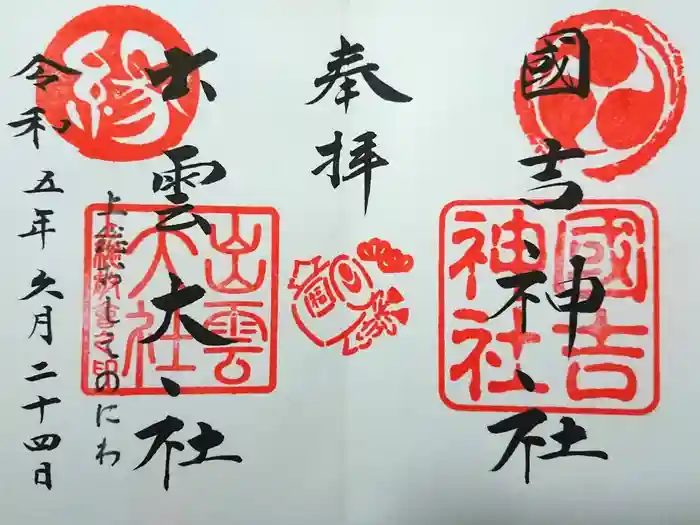 國吉神社
國吉
神社
奉拝
出雲大社
出雲
大社
縁
上総
のにわ
令和五年六月二十四日